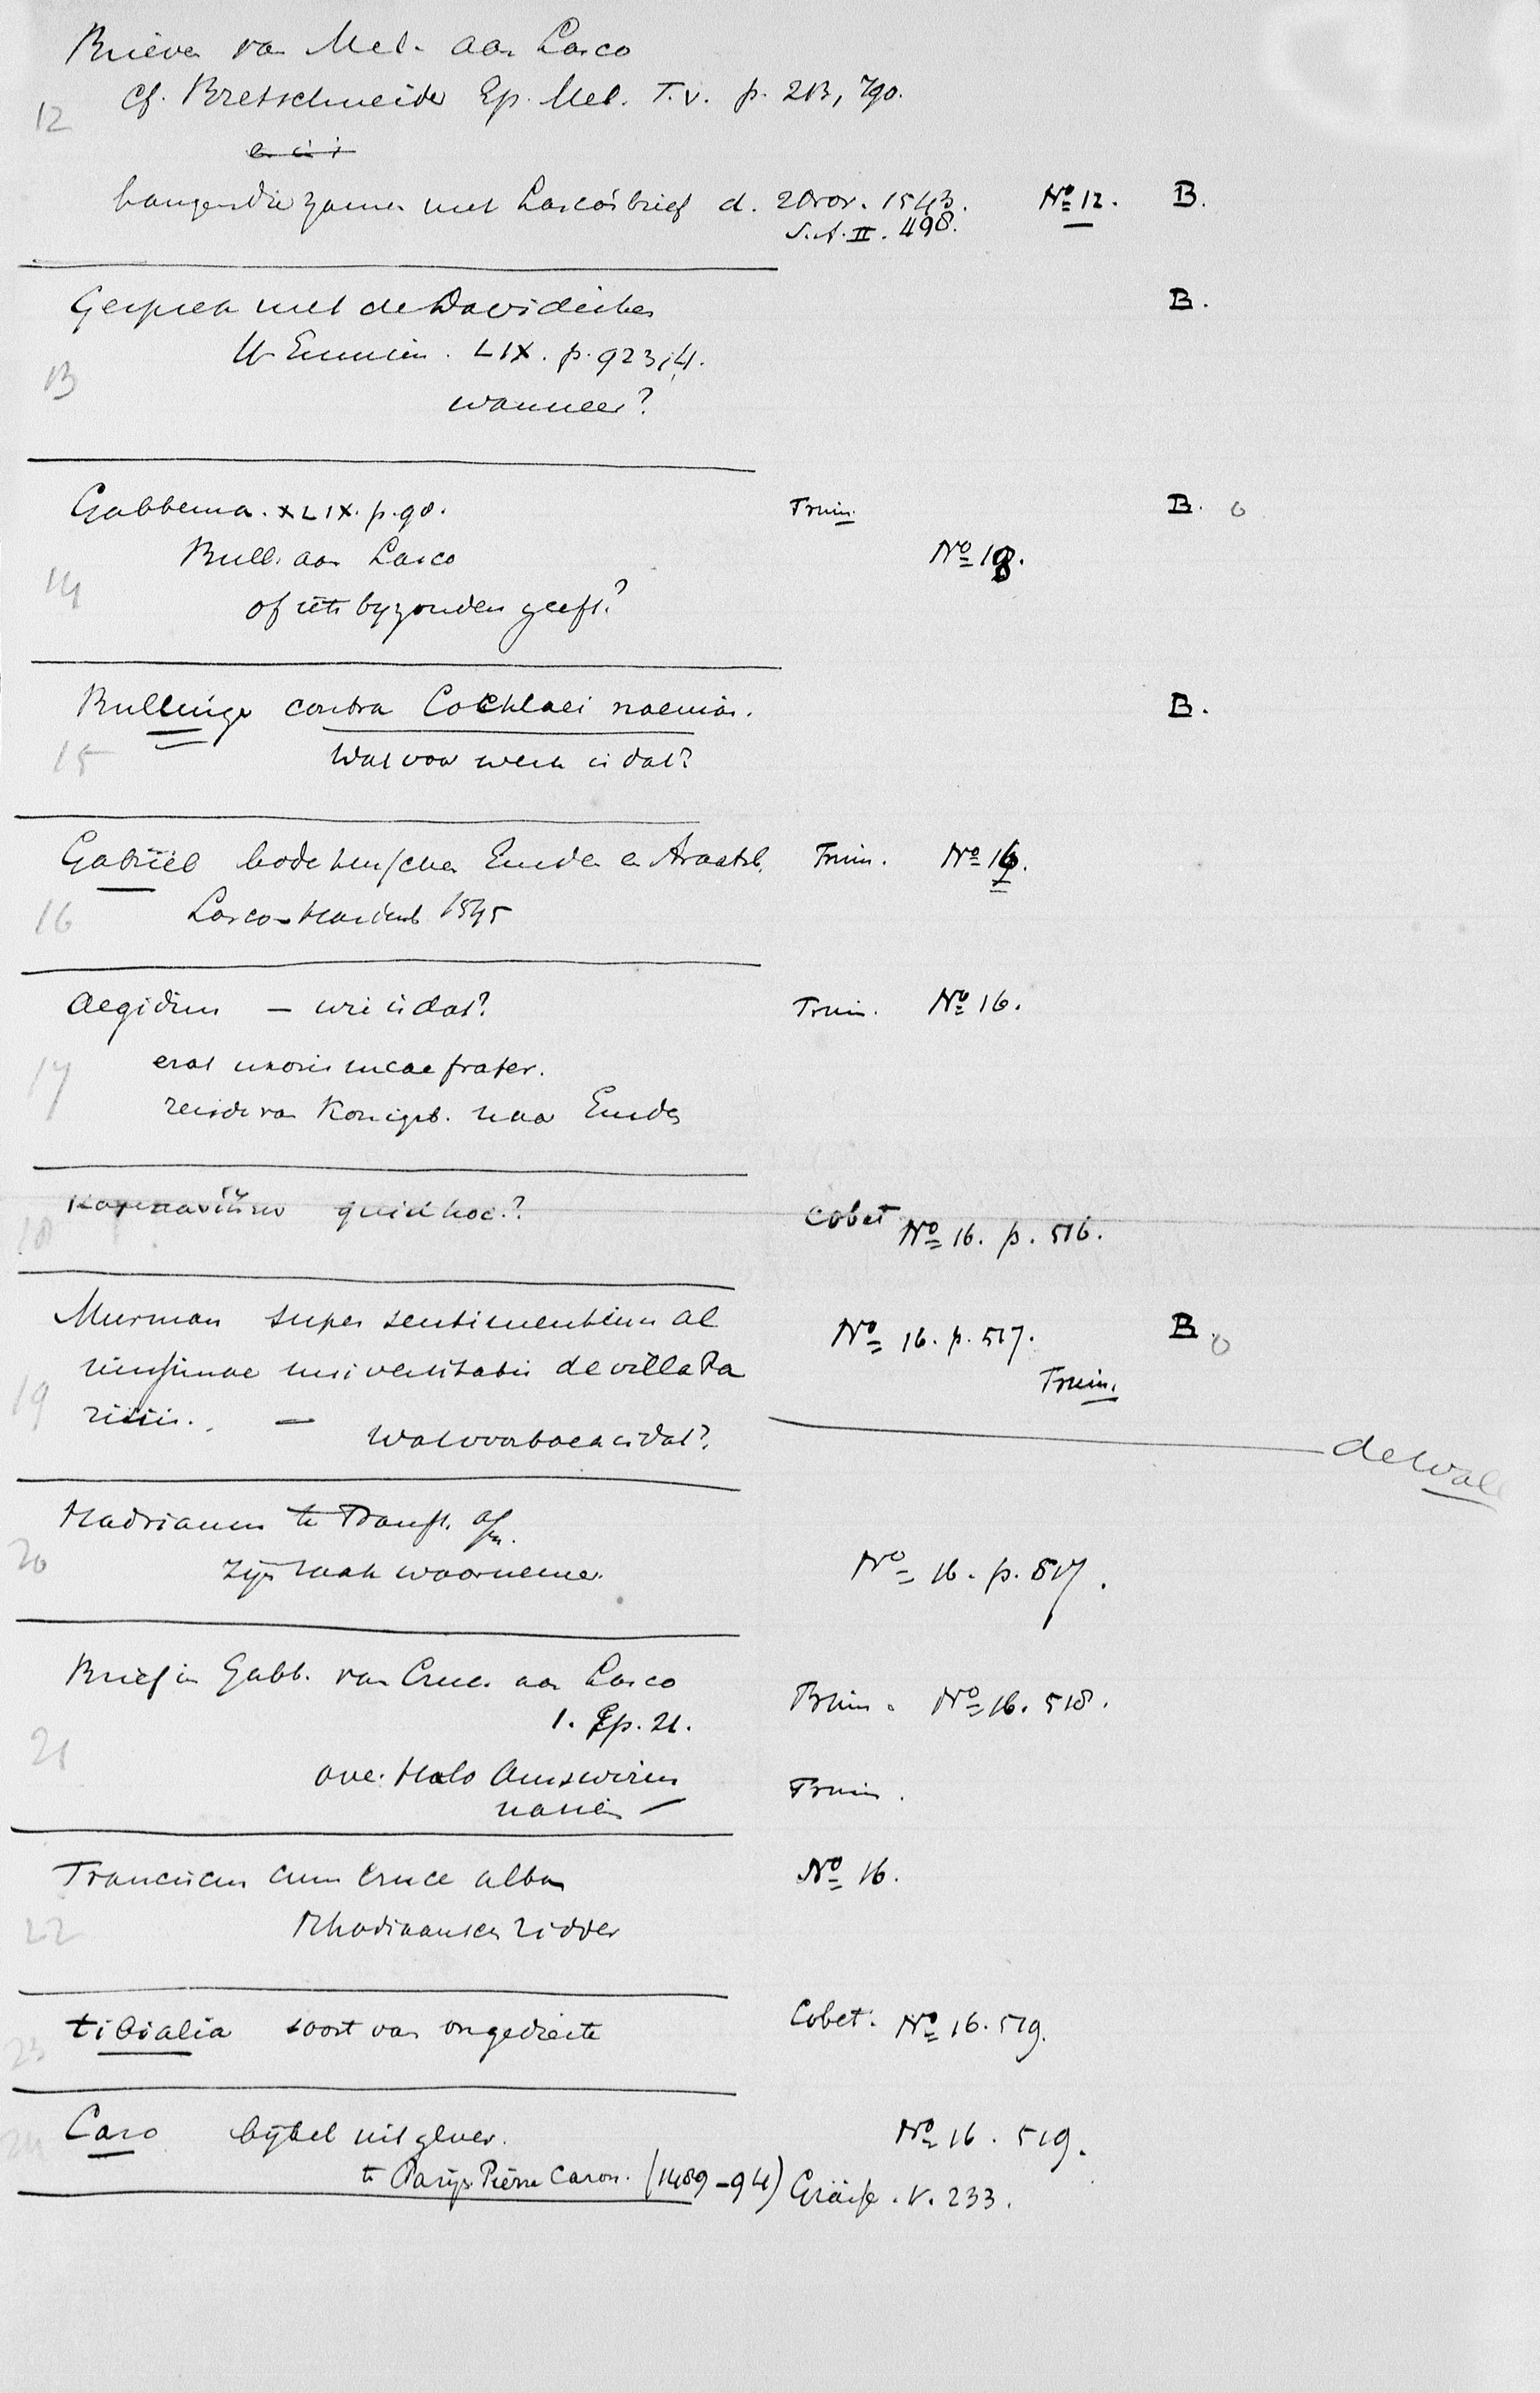 Brieven van Mel. aan Lasco
12 cf. Bretschneider Ep. Mel. T.V. p. 213, 790.
hangen die zamen met Lasco's brief d. 2 Nov. 1543. No 12. B.
S.A. II. 498.
Gesprek met de Davidisten B.
U. Emmius. LIX. p. 923,4.
13
wanneer?
Gabbema. XLIX. p. 98. Fruin. B. o
Bull. aan Lasco No 18.
14
of iets byzonders geeft?
Bullinger contra Cochlaei naenias. B.
15 Wat voor werk is dat?
Gabriël bode tusschen Emden en Fruin. No 16.
16 Lasco - Hardenb 1545
Aegidius — wie is dat? Fruin. No 16.
17 erat uxoris meae frater.
reisde van Konigsb. naar Emden
18 quid hoc? Cobet No 16. p. 516.
Murman super sentimentum al No 16. p. 517. B. o
missimae universitatis de villa Pa Fruin.
19 risiis. — Wat voor boek is dat?
de Wal
Hadrianus te Francf. of
20 zijn zaak waarnemen. No 16. p. 517.
Brief in Gabb. van Cruc. aan Lasco Fruin. No 16. 518.
1. Ep. 21.
21
over Halo Fruin.
Franciscus cum cruce alba No 16.
22 Rhodiaansch ridder
23 tibialia soort van ongedierte Cobet. No 16. 519.
24 Caro bijbel uitgever. No 16. 519.
te Parijs Pierre Caron. (1489-94) Grässe. V. 233.